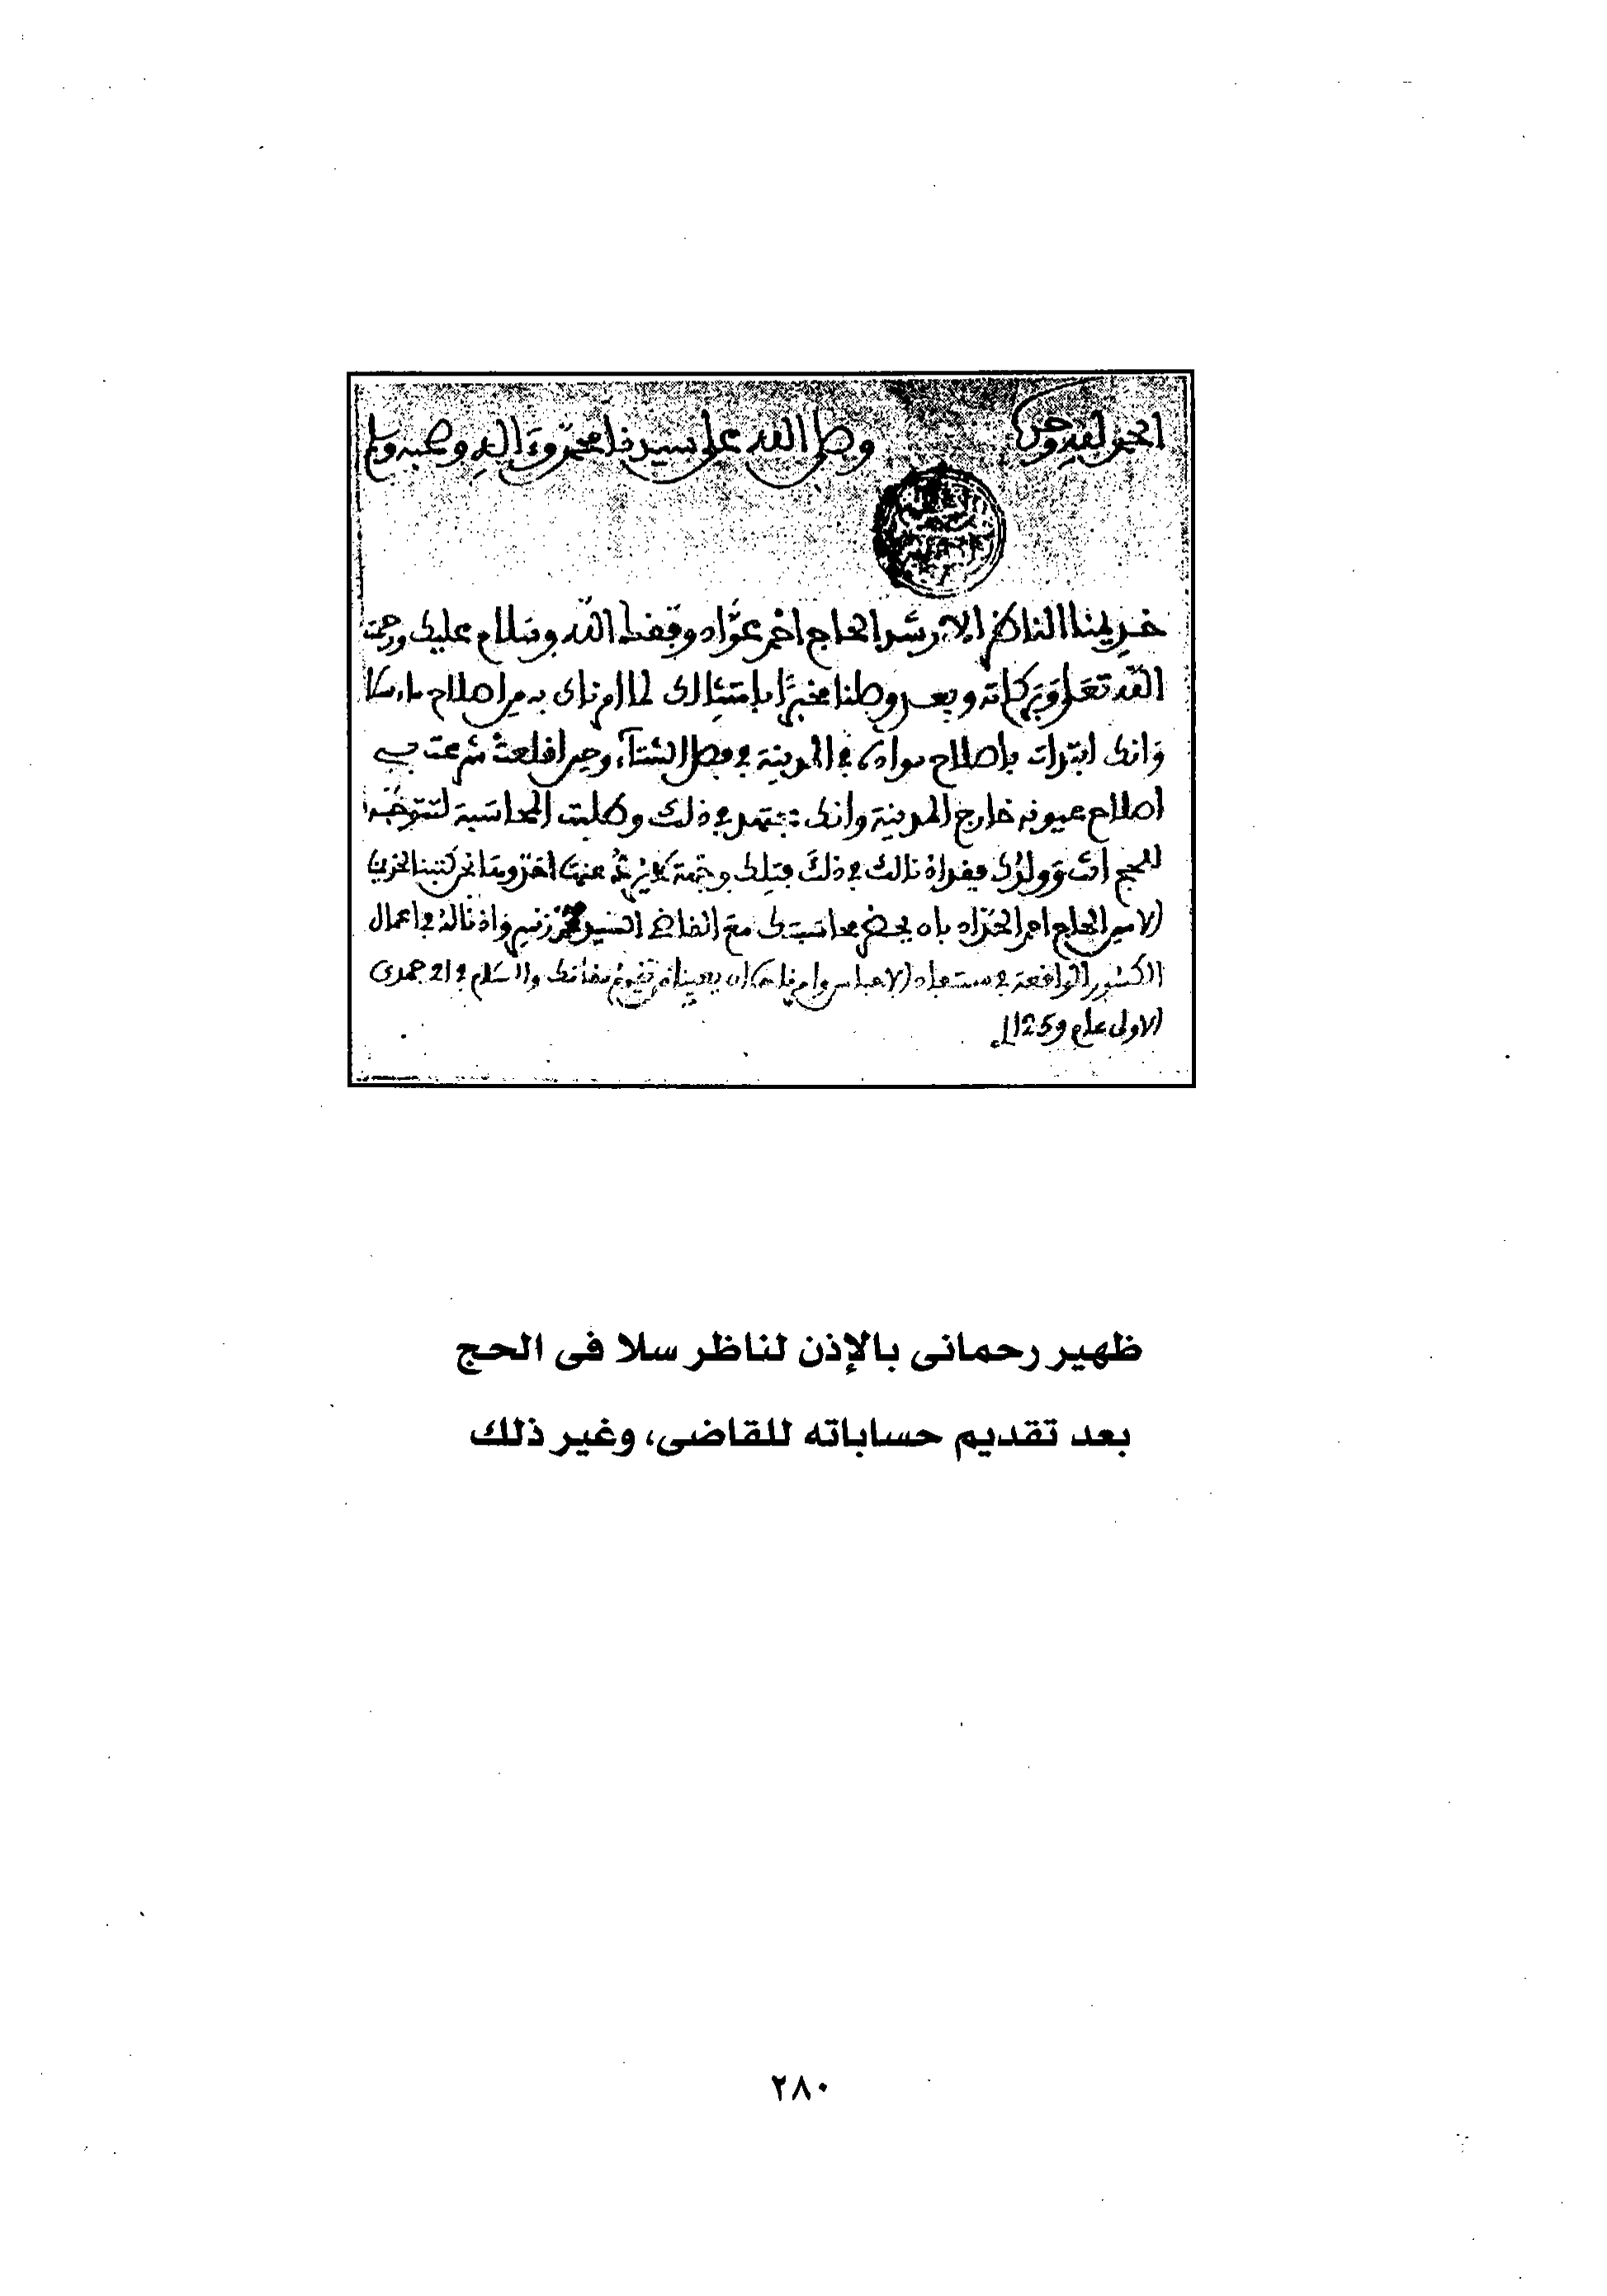 الحمد لله وحده وصلى الله على سيدنا محمد وءاله وصحبه وسلم
خديمنا الناظر الارشد الحاج احمد عواد وفقك الله وسلام عليك ورحمت
الله تعلى وبركاته وبعد وصلنا مخبرا بامتثالك لما امرناك به من اصلاح
وانك ابتدات باصلاح سواد في المدينة في فصل الشتاء وحين اقلعت شرعت في
اصلاح عيونه خارج المدينة وانك مجتهد في ذلك وطلبت المحاسبة لتتوجه
للحج انت وولدك فقد اذنا لك في ذلك كتبنا لخديمنا
الامين الحاج احمد بان يحضر محاسبتك مع القاضي السيد محمد زنيبر واذنا له في اعمال
الكسور الواقعة في مستفاد الاحباس مقامك والسلام في 21 جمدى
الاولى عام 1259
ظهير رحمانى بالإذن لناظر سلا فى الحج
بعد تقديم حساباته للقاضى، وغير ذلك
٢٨٠